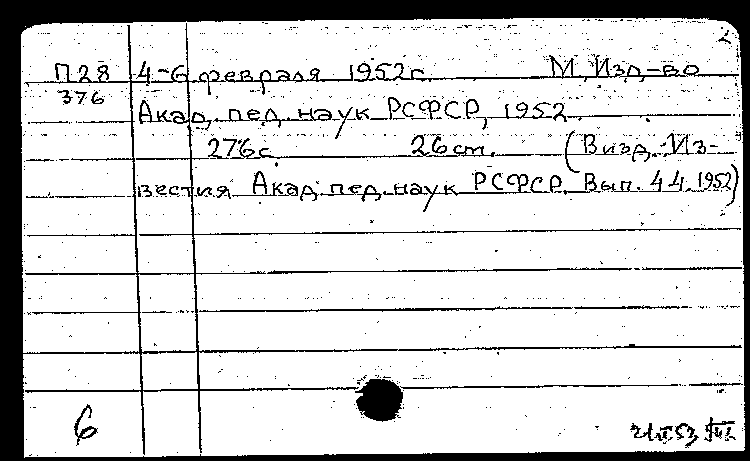 2
П28 4-6 февраля 1952г. М, Изд-во
376
Акад. пед. наук РСФСР, 1952.
276с. 26см. (В изд.: Из-
вестия Акад. пед. наук РСФСР. Вып. 44. 1952)
6